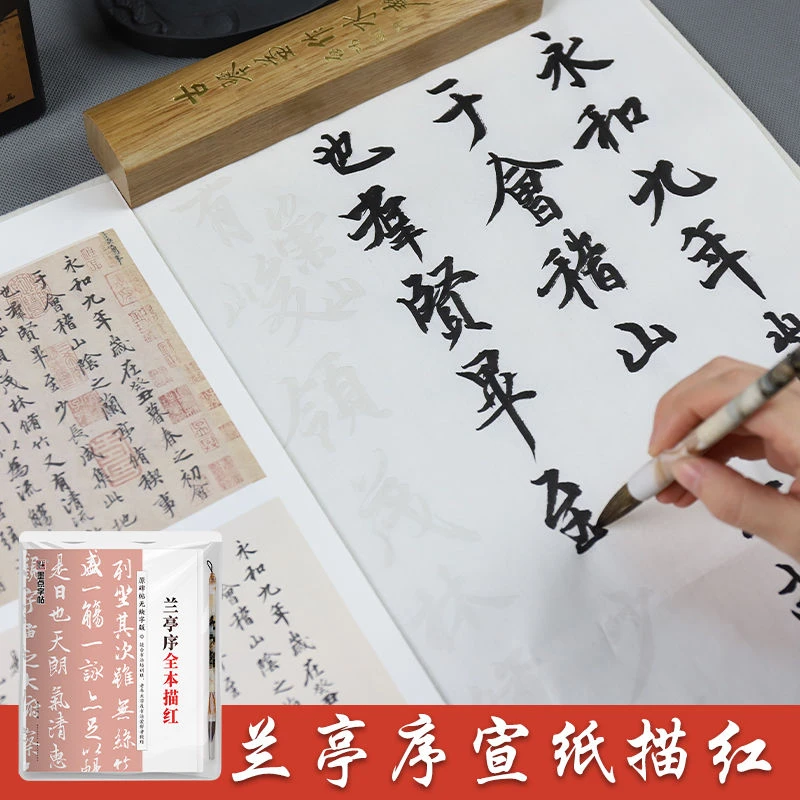 永和九年
于會稽山
也羣賢畢至
有崇山
峻領茂林
永和九年歲在癸丑暮春之初會
于會稽山陰之蘭亭脩稧事
也羣賢畢至少長咸集此地
茂林脩竹又有清流
以為流觴
永和九年歲在癸
會稽山陰之
至
墨点字帖
列坐其次雖無絲竹
盛一觴一詠亦足以暢
是日也天朗氣清惠
原碑帖无缺字版
兰亭序全本描红
兰亭序宣纸描红